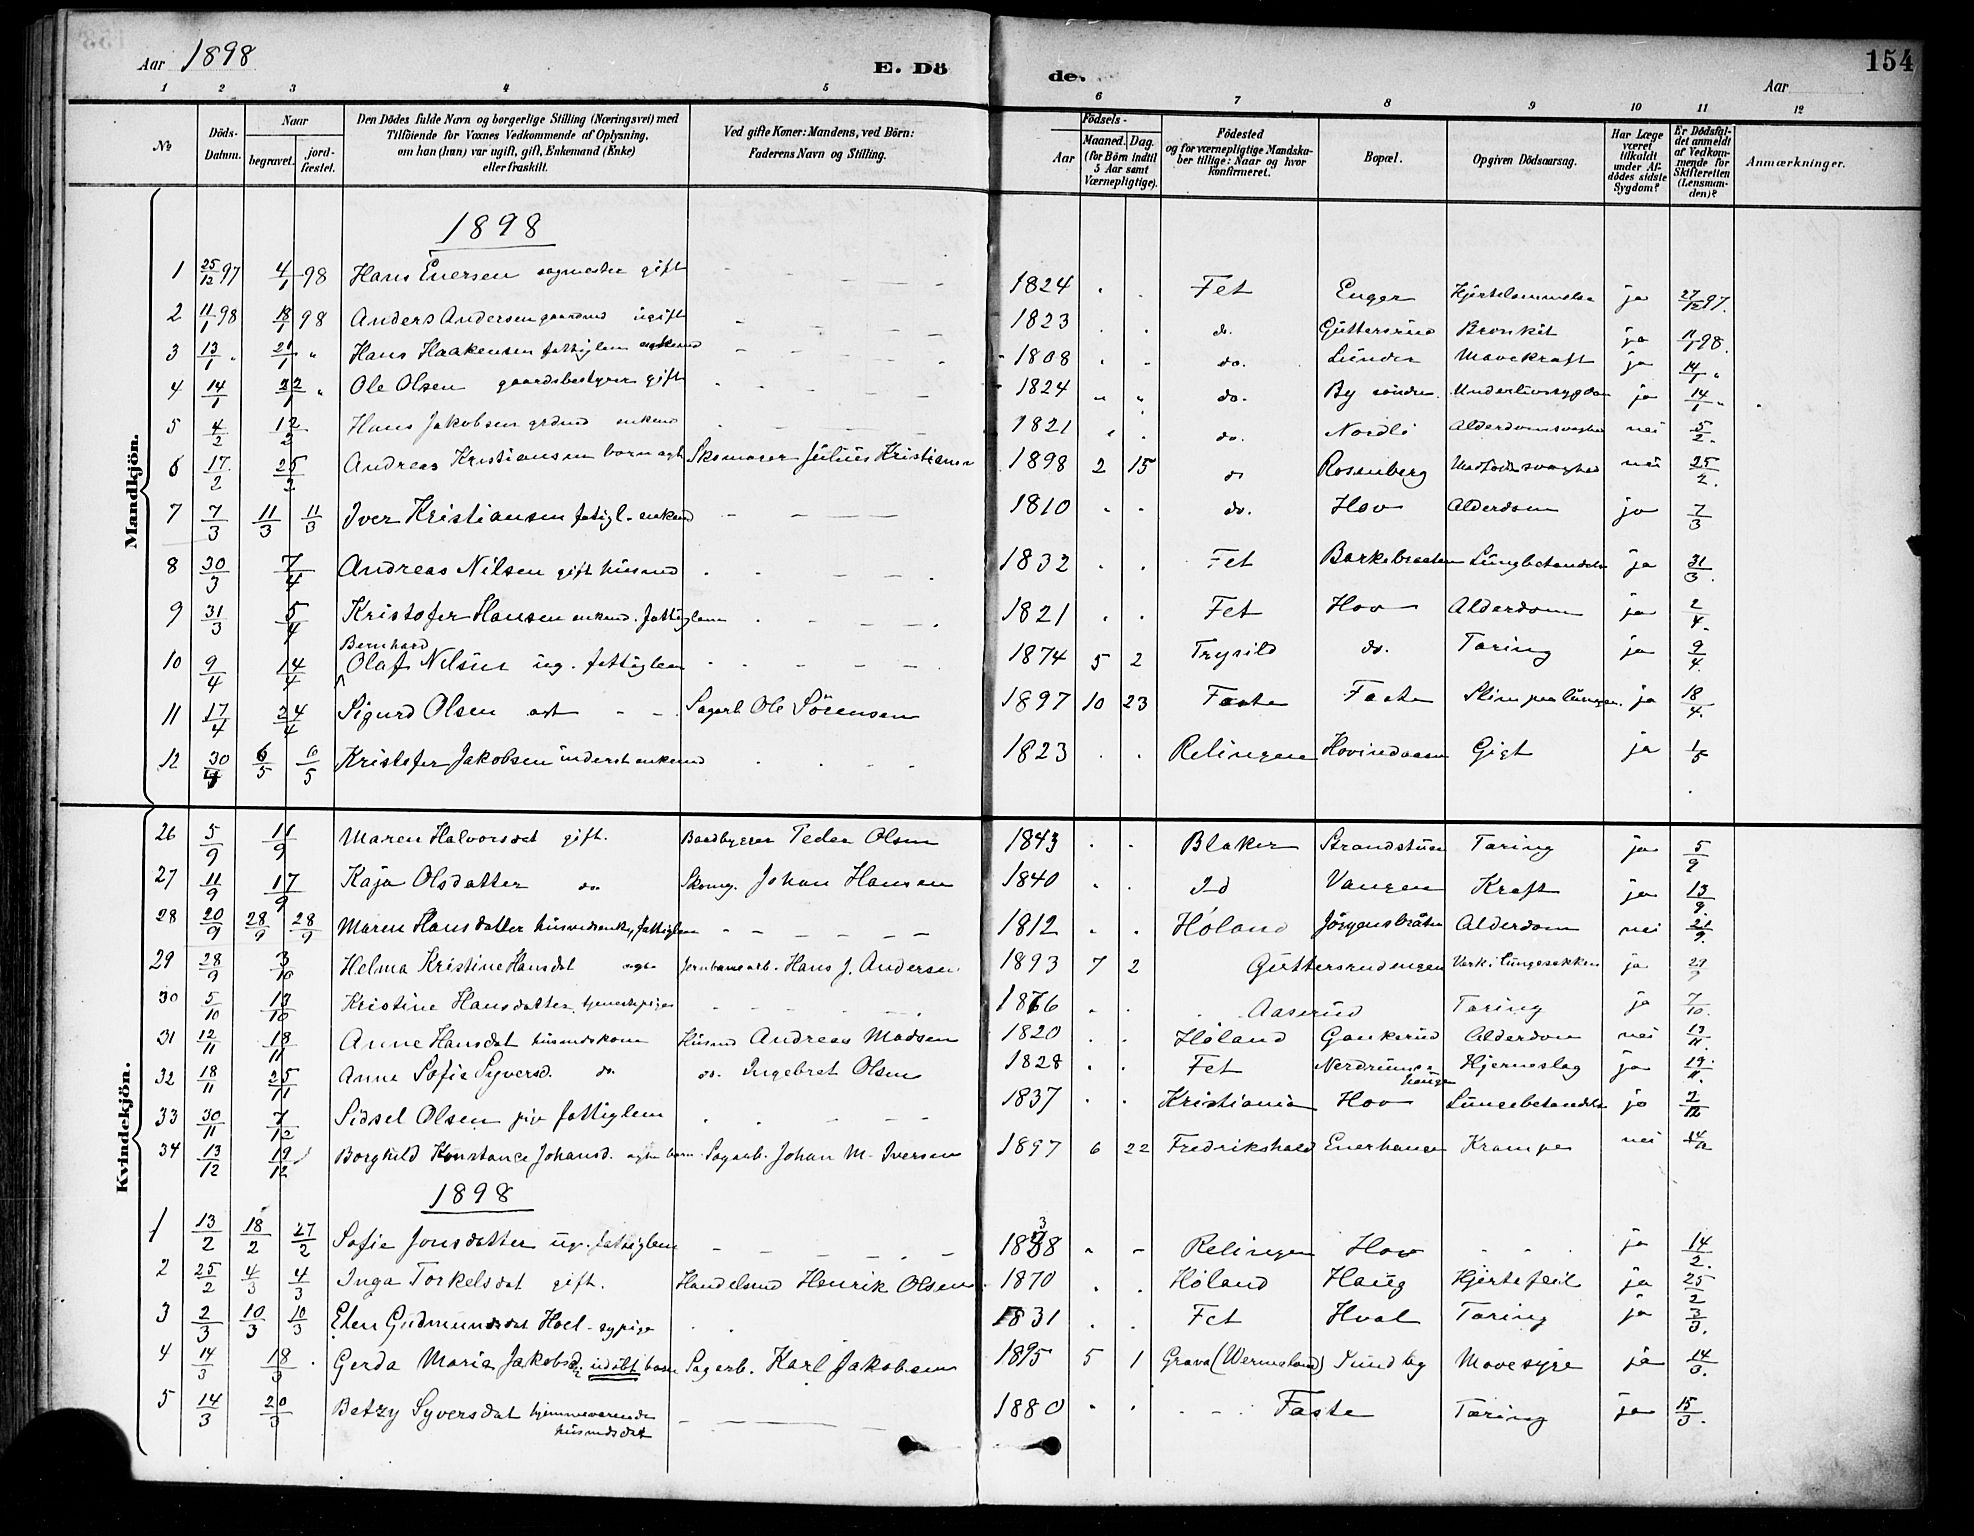 Aar 1898 E. Dö de. Aar 154
1 2 3 4 5 6 7 8 9 10 11 12
No Döds-Datum. Naar begravet. jordfæstet. Den Dödes fulde Navn og borgerlige Stilling (Næringsvei) med Tilföiende for Voxnes Vedkommende af Oplysning, om han (hun) var ugift, gift, Enkemand (Enke) eller fraskilt. Ved gifte Koner: Mandens, ved Börn: Faderens Navn og Stilling. Födsels- Aar Maaned. Dag. (for Börn indtil 5 Aar samt Værnepligtige). Födested og for værnepligtige Mandskaber tillige: Naar og hvor konfirmeret. Bopæl. Opgiven Dödsaarsag. Har Læge været tilkaldt under Afdödes sidste Sygdom? Er Dödsfaldet anmeldt af Vedkommende for Skifteretten (Lensmanden)? Anmærkninger.
Mandkjön.
1898
1 25/12 97 4/1 98 Hans Enersen sagmester gift 1824 Fet Enger ja 27/12 97.
2 11/1 98 18/1 98 Anders Andersen gaardmd ugift 1823 do. Guttersrud Bronkit ja 11/1 98.
3 13/1 " 21/1 " Hans Haakensen fattiglem enkemd 1808 do. Lunder Mavekræft ja 14/1 "
4 14/1 22/1 " Ole Olsen gaardsbestyrer gift 1824 do. By söndre Underlivssygdom ja 14/1 "
5 4/2 12/2 Hans Jakobsen grdmd enkemd 1821 do. Nordli Alderdomssvaghed nei 5/2.
6 17/2 25/2 Andreas Kristiansen barn ægt Skomager Julius Kristiansen 1898 2 15 do Rosenberg Medfödt svaghed nei 25/2.
7 7/3 11/3 11/3 Iver Kristiansen fatigl. enkemd 1810 do. Hov Alderdom ja 7/3
8 30/3 7/4 Andreas Nilsen gift husmd 1832 Fet Barkebraaten Lungbetændelse ja 31/3.
9 31/3 5/4 Kristofer Hansen enkemd. fattiglem 1821 Fet Hov Alderdom ja 2/4.
10 9/4 14/4 Bernhard Olaf Nilsen ug. fattiglem 1874 5 2 Trysild do. Tæring ja 9/4.
11 17/4 24/4 Sigurd Olsen ægt Sagarb. Ole Sörensen 1897 10 23 Faste Faste Slim paa lungen. ja 18/4.
12 30/4 6/5 6/5 Kristofer Jakobsen inderst enkemd 1823 Relingen Hovindaasen Gigt ja 1/5
Kvindekjön.
26 5/9 11/9 Maren Halvorsdat gift. Baadbygger Peder Olsen 1843 Blaker Strandstuen Tæring ja 5/9
27 11/9 17/9 Kaja Olsdatter do Skomg. Johan Hansen 1840 Id Vangen Kræft ja 13/9.
28 20/9 28/9 28/9 Maren Hansdatter husmdsenke, fattiglem 1812 Höland Jörgensbråten Alderdom nei 21/9.
29 28/9 3/10 Helma Kristine Hansdat ægte Jernbanearb. Hans J. Andersen 1893 7 2 Guttersrudengen Værk i lungesækken ja 29/9
30 5/10 13/10 Kristine Hansdatter, tjenestepige 1876 Aaserud Tæring ja 7/10.
31 12/11 18/11 Anne Hansdat husmdskone Husmd Andreas Madsen 1820 Höland Gankerud Alderdom nei 13/11.
32 18/11 25/11 Anne Sofie Syversd. do. do. Ingebret Olsen 1828 Fet Nerdrumshaugen Hjerneslag ja 19/11.
33 30/11 7/12 Sidsel Olsen piv fattiglem 1837 Kristiania Hov Lungebetændelse ja 2/12
34 13/12 19/12 Borghild Konstance Johansd. ægte barn Sagarb. Johan M. Iversen 1897 6 22 Fredrikshald Enerhaugen Krampe nei 14/12
1898
1 13/2 18/2 27/2 Sofie Jonsdatter ug. fattiglem Relingen Hov ja 14/2.
2 25/2 4/3 4/3 Inga Torkelsdat gift. Handelsmd Henrik Olsen 1870 Höland Haug Hjertefeil ja 25/2
3 2/3 10/3 10/3 Elen Gudmundsdat Hoel - sypige 1831 Fet Hval Tæring ja 3/3.
4 14/3 18/3 Gerda Marie Jakobsd. udöbt barn Sagarb. Karl Jakobsen 1895 5 1 Grava (Wermeland) Sundby Mavesyre ja 14/3.
5 14/3 20/3 Betzy Syversdat hjemmeværende husmdsdat 1880 Faste Tæring ja 15/3.